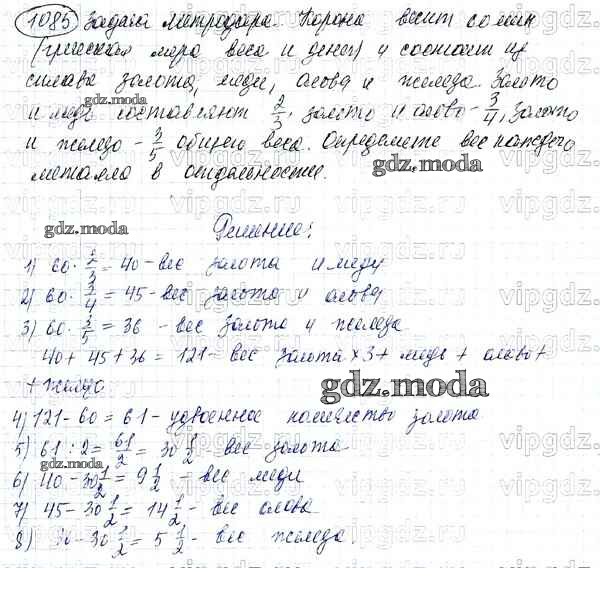 1085 Задача Метродора. Корона весит 60 мин
(греческая мера веса и денег) и состоит из
сплава золота, меди, олова и железа. Золото
и медь составляют 2/3, золото и олово - 3/4, золото
и железо - 3/5 общего веса. Определите вес каждого
металла в отдельности.
Решение:
1) 60 · 2/3 = 40 - вес золота и меди
2) 60 · 3/4 = 45 - вес золота и олова
3) 60 · 3/5 = 36 - вес золота и железа
40 + 45 + 36 = 121 - вес золота х3 + медь + олово +
+ железо
4) 121 - 60 = 61 - удвоенное количество золота
5) 61 : 2 = 61/2 = 30 1/2 - вес золота
6) 40 - 30 1/2 = 9 1/2 - вес меди
7) 45 - 30 1/2 = 14 1/2 - вес олова
8) - 30 1/2 = 5 1/2 - вес железа
gdz.moda
gdz.moda
gdz.moda
gdz.moda
gdz.moda
vipgdz.ru